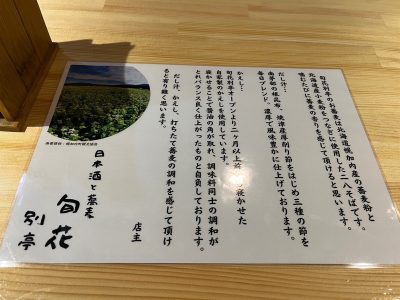 旬花別亭のお蕎麦は北海道幌加内産の蕎麦粉と
北海道産小麦粉をつなぎに使用した二八そばです。
噛むたびに蕎麦の香りを感じて頂けると思います。
だし汁…
南茅部の根昆布、焼津産厚削り節をはじめ三種の節を
毎日ブレンド。濃厚で風味豊かに仕上げております。
かえし…
旬花別亭オープンより二ヶ月以上
寝かせた
自家製のかえしを使用しています。
寝かせることで醤油の角が取れ、調味料同士の調和が
とれバランス良く仕上がったものと自負しております。
だし汁、かえし、打ちたて蕎麦の調和を感じて頂け
ると有り難く思います。
店主
日本酒と蕎麦
旬花
別亭